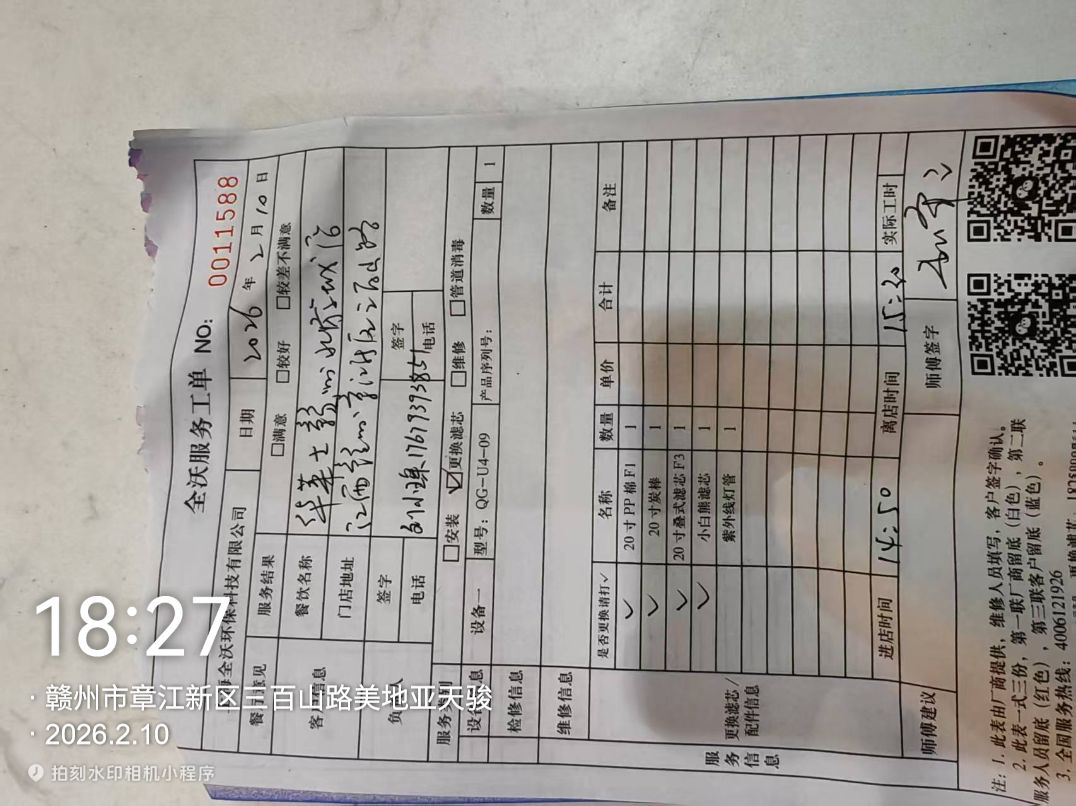 全沃服务工单 NO: 0011588
全沃环保科技有限公司 日期 2026 年 2 月 10 日
服务结果 □满意 □较好 □较差不满意
餐饮名称 华莱士
门店地址 江西
签字 签字
电话 17679393851 电话
□安装 ☑更换滤芯 □维修 □管道消毒
设备一 型号: QG-U4-09 产品序列号: 数量 1
检修信息
维修信息
服务信息 更换滤芯/配件信息
是否更换请打✓ 名称 数量 单价 合计 备注
✓ 20寸PP棉F1 1
✓ 20寸炭棒 1
✓ 20寸叠式滤芯F3 1
✓ 小白熊滤芯 1
紫外线灯管 1
进店时间 14:50 离店时间 15:30 实际工时
师傅建议 师傅签字
注: 1. 此表由厂商提供, 维修人员填写, 客户签字确认。
2. 此表一式三份, 第一联厂商留底(白色), 第二联
服务人员留底(红色), 第三联客户留底(蓝色)。
3. 全国服务热线: 4006121926
18:27
· 赣州市章江新区三百山路美地亚天骏
· 2026.2.10
拍刻水印相机小程序